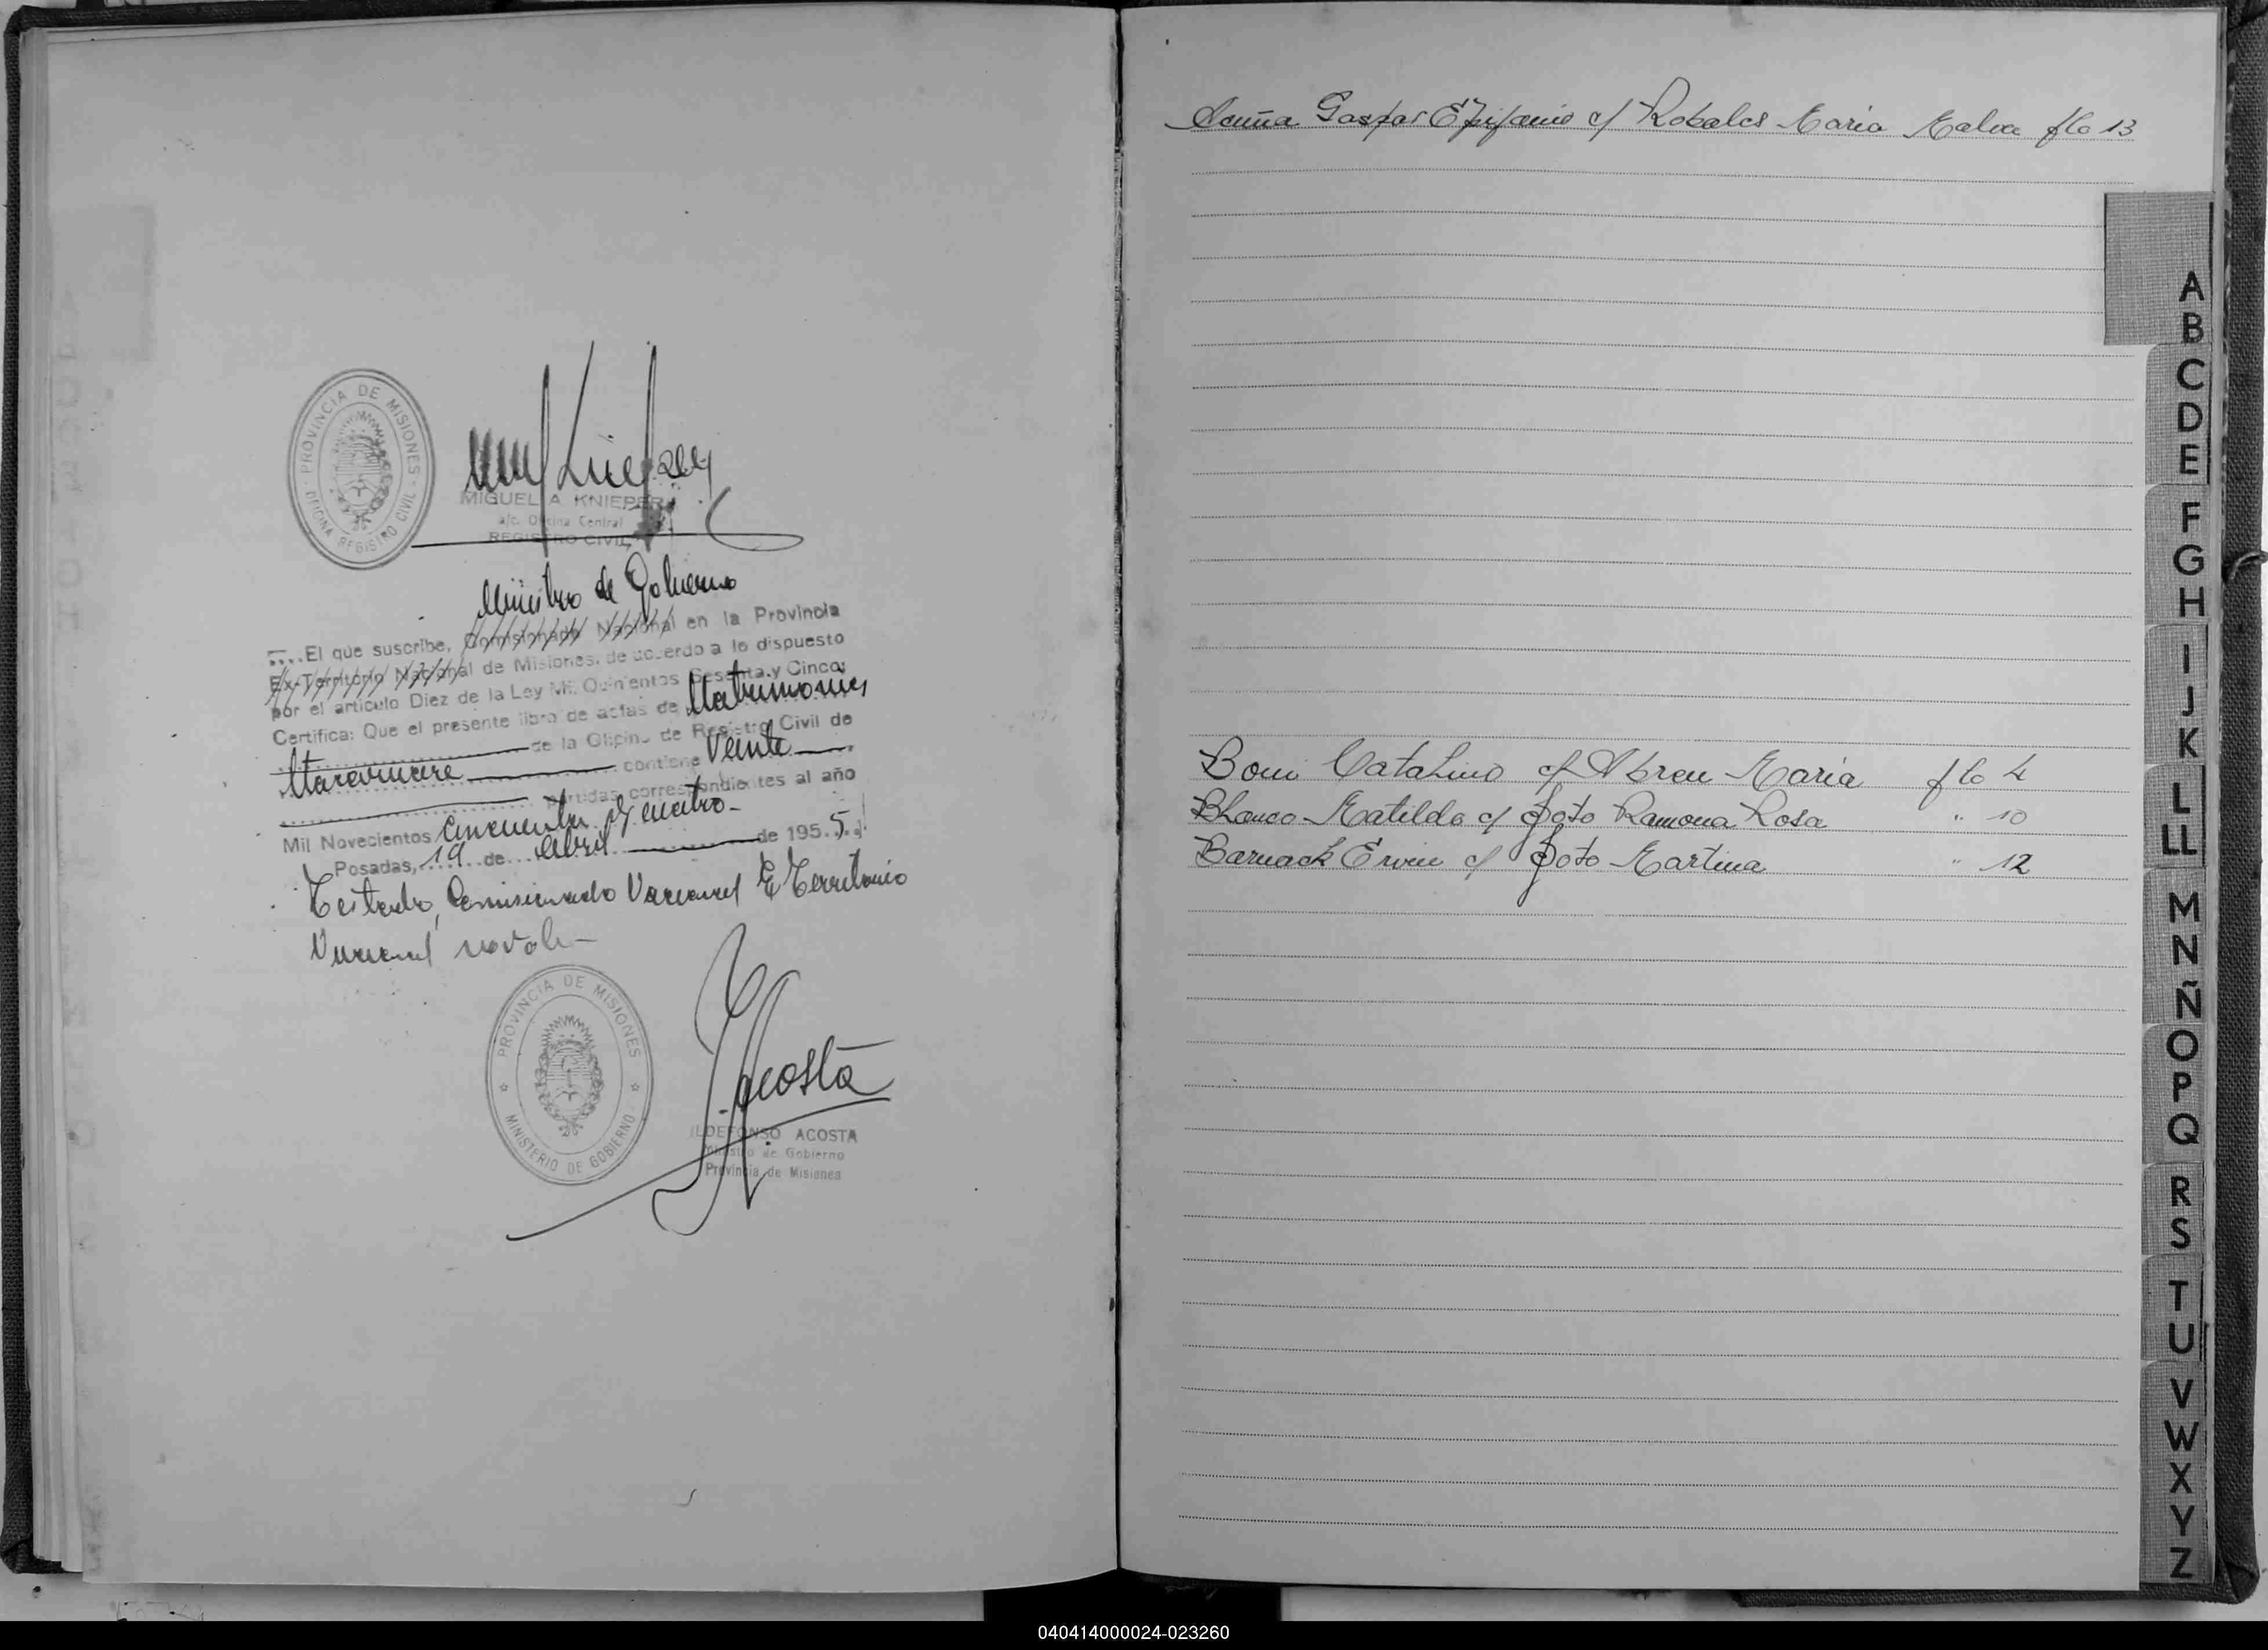 PROVINCIA DE MISIONES
OFICINA REGISTRO CIVIL
MIGUEL A. KNIEPER
a/c. Oficina Central
REGISTRO CIVIL
Ministro de Gobierno
El que suscribe, Comisionado Nacional en la Provincia
Ex-Territorio Nacional de Misiones, de acuerdo a lo dispuesto
por el artículo Diez de la Ley Mil Quinientos Sesenta y Cinco;
Certifica: Que el presente libro de actas de Matrimonios
de la Oficina de Registro Civil de
contiene Veinte
partidas correspondientes al año
Mil Novecientos Cincuenta y cuatro
Posadas, 19 de Abril de 1955
Testado, Comisionado Nacional Ex Territorio
Nacional no vale
PROVINCIA DE MISIONES
MINISTERIO DE GOBIERNO
Acosta
ILDEFONSO ACOSTA
Ministro de Gobierno
Provincia de Misiones
Acuña Gaspar Epifanio c/ Robales Maria Malva flo 13
Boni Catalino c/ Abreu Maria flo 4
Blanco Matilde c/ Soto Ramona Rosa " 10
Barnack Erwin c/ Soto Martina " 12
A
B
C
D
E
F
G
H
I
J
K
L
LL
M
N
Ñ
O
P
Q
R
S
T
U
V
W
X
Y
Z
040414000024-023260